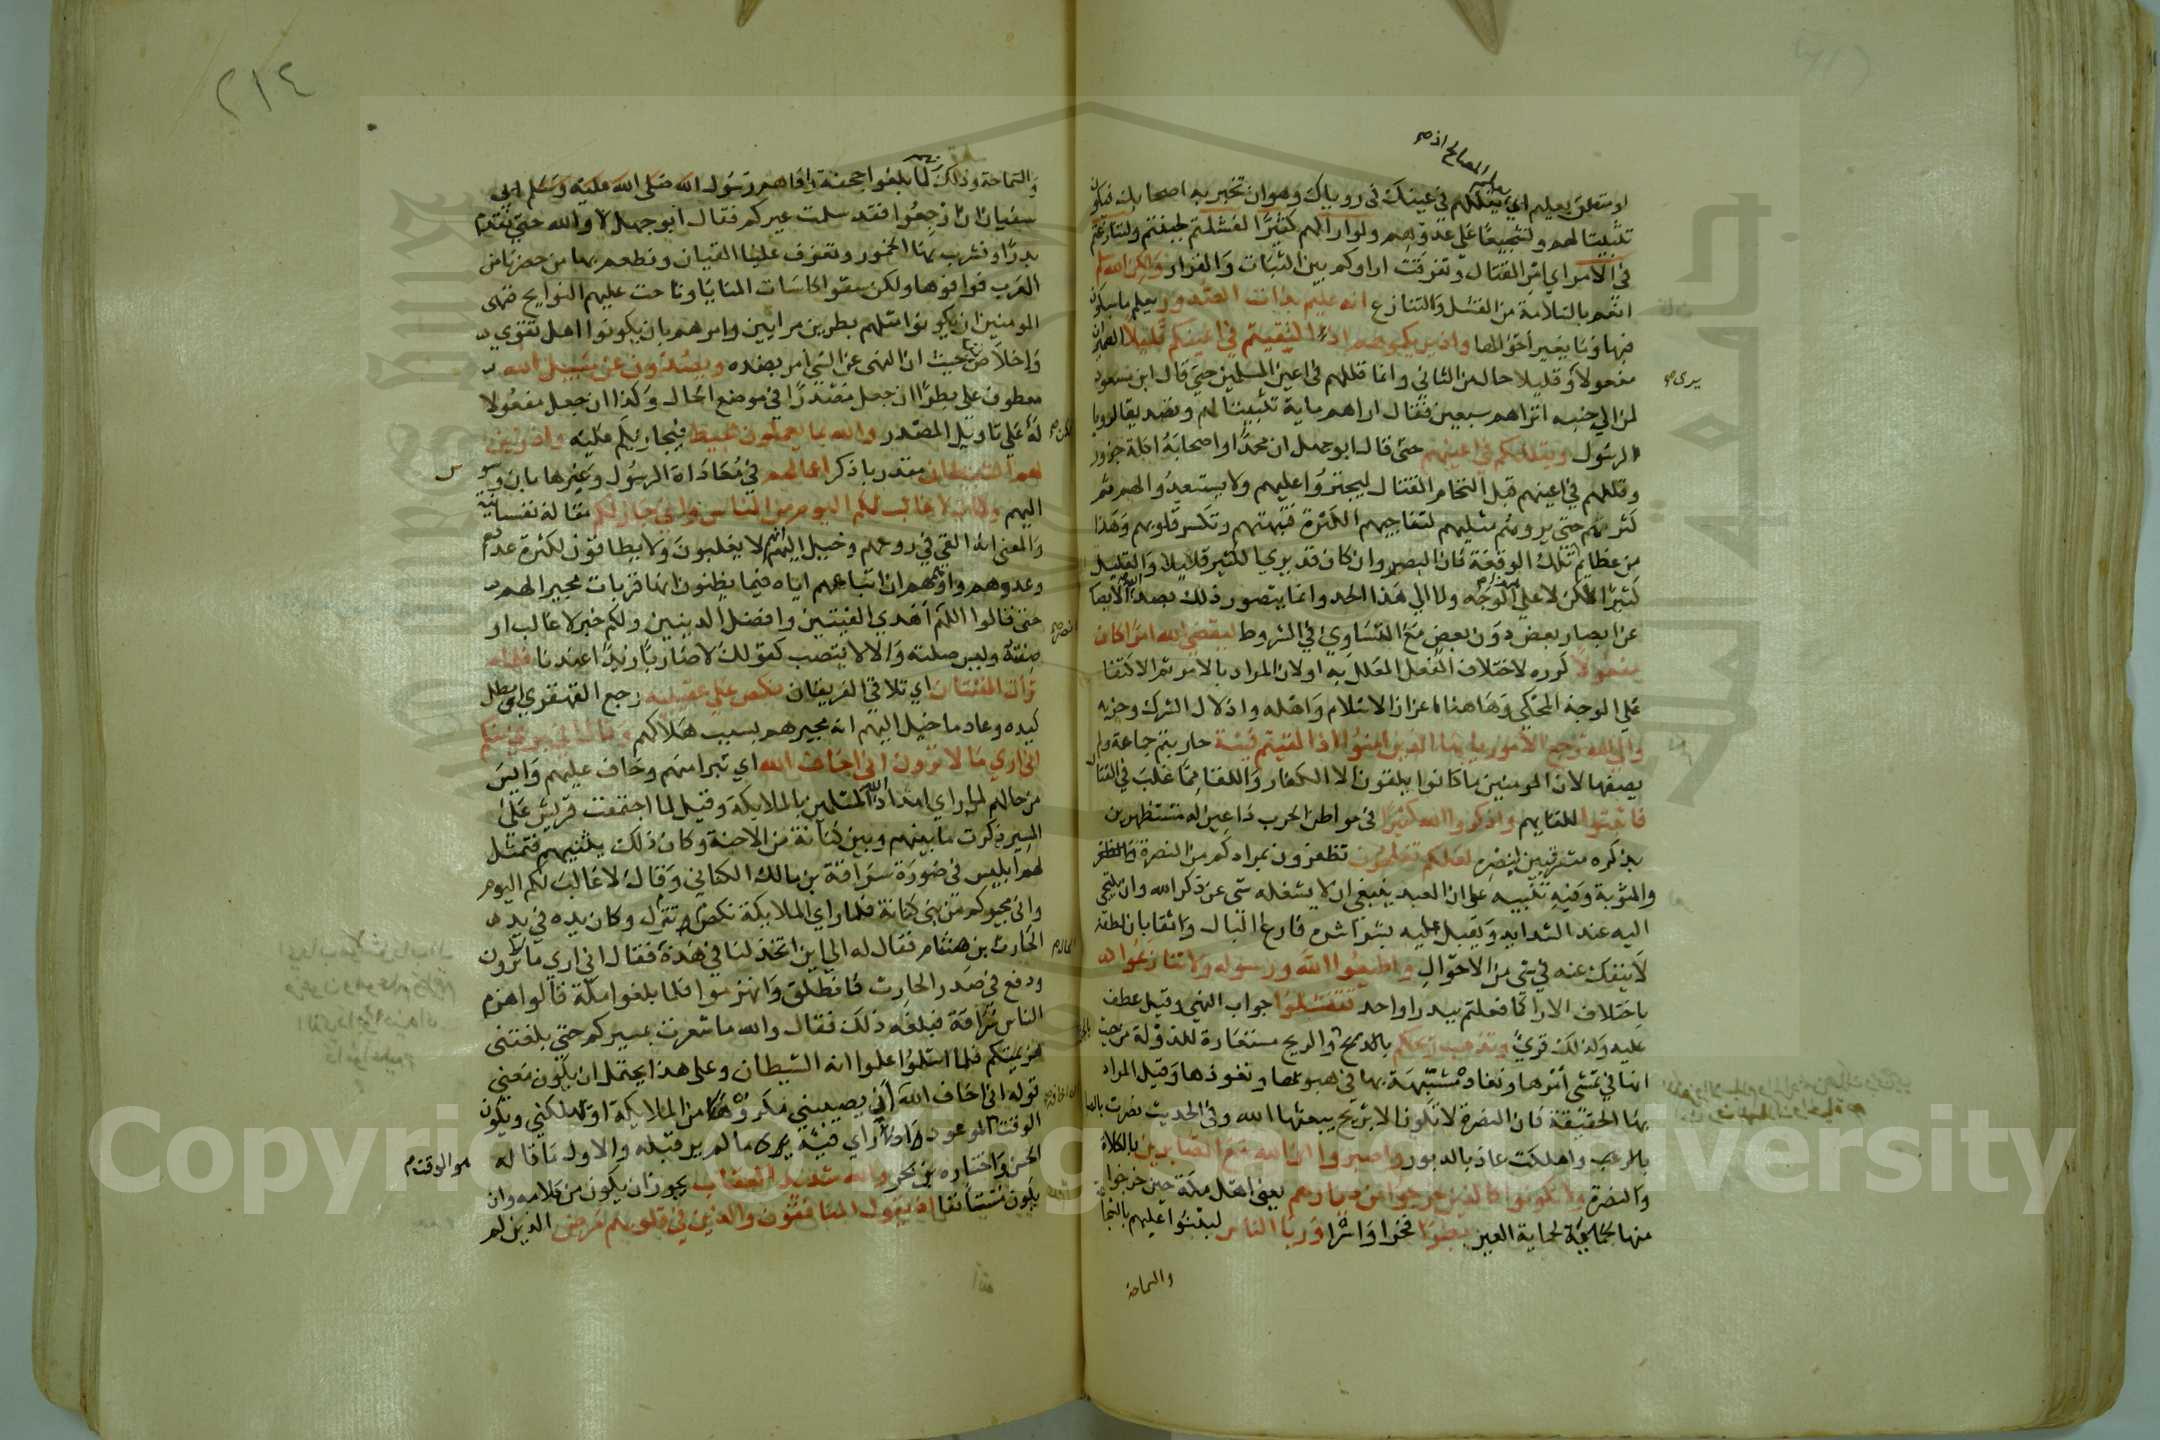 او متعلق بعليم اي يقللهم في عينك في روياك وهو ان تخبر به اصحابك فيكون
تثبيتا لهم ولتشجيعا علي عدوهم ولو اراكهم كثيرا لفشلتم لجبنتم ولتنازعتم
في الامر اي امر القتال وتفرقت اراوكم بين الثبات والفرار ولكن الله سلم
انعم بالسلامة من الفشل والتنازع انه عليم بذات الصدور يعلم ما سيكون
فيها وما يغير احوالها واذ يريكموهم اذ التقيتم في اعينكم قليلا الضميران
مفعولا وقليلا حال من الثاني وانما قللهم في اعين المسلمين حتي قال ابن مسعود
لمن الي جنبه اتراهم سبعين فقال اراهم ماية تثبيتا لهم وتصديقا لرويا
الرسول ويقللكم في اعينهم حتي قال ابو جهل ان محمدا واصحابه اكلة جزور
وقللهم في اعينهم قبل التحام القتال ليجتروا عليهم ولا يستعدوا لهم ثم
كثرهم حتي يرونهم مثليهم لتفاجيهم الكثرة فتبهتهم وتكسر قلوبهم وهذا
من عظايم تلك الوقعة فان البصر وان كان قد يري الكثير قليلا والقليل
كثيرا لكن لا علي الوجه ولا الي هذا الحد وانما يتصور ذلك بصد الله الابصار
عن ابصار بعض دون بعض مع التساوي في الشروط ليقضي الله امرا كان
مفعولا كرره لاختلاف الفعل المعلل به او لان المراد بالامر ثم الاكتفا
علي الوجه المحكي وهاهنا اعزاز الاسلام واهله واذلال الشرك وحزبه
والي الله ترجع الامور يا يها الذين امنوا اذا لقيتم فيئة حاربتم جماعة ولم
يصفها لان المومنين ما كانوا يلقون الا الكفار واللقا مما غلب في القتال
فاثبتوا للقايهم واذكروا الله كثيرا في مواطن الحرب داعين له مستظهرين
بذكره مترقبين لنصره لعلكم تفلحون تظفرون بمرادكم من النصرة والظفر
والمثوبة وفيه تنبيه علي ان العبد ينبغي ان لا يشغله شي عن ذكر الله وان يلتجي
اليه عند الشدايد ويقبل عليه بشراشره فارغ البال واثقا بان لطفه
لا ينفك عنه في شي من الاحوال واطيعوا الله ورسوله ولا تنازعوا
باختلاف الارا كما فعلتم ببدر او احد فتفشلوا جواب النهي وقيل عطف
عليه ولذلك قري وتذهب ريحكم بالجزم والريح مستعارة للدولة من حيث
انها في تمشي امرها ونفاذه مشبهة بها في هبوبها ونفوذها وقيل المراد
بها الحقيقة فان النصرة لا تكون الا بريح يبعثها الله وفي الحديث نصرت بالصبا
واهلكت عاد بالدبور واصبروا ان الله مع الصابرين بالكلاة
والنصرة ولا تكونوا كالذين خرجوا من ديارهم يعني اهل مكة حين خرجوا
منها لحماية العير بطرا فخرا واشرا وريا الناس ليثنوا عليهم بالشجاعة
والسماحة
٢١٤
والسماحة وذلك لما بلغوا جحفة وافاهم رسول الله صلي الله عليه وسلم ابي
سفيان ان ارجعوا فقد سلمت عيركم فقال ابو جهل لا والله حتي نقدم
بدرا ونشرب بها الخمور وتعزف علينا القيان ونطعم بها من حضرنا من
العرب فوافوها ولكن سقوا كاسات المنايا وناحت عليهم النوايح فنهي
المومنين ان يكونوا مثلهم بطرين مرايين وامرهم بان يكونوا اهل تقوي
واخلاص من حيث ان النهي عن الشي امر بضده ويصدون عن سبيل الله
معطوف علي بطرا ان جعل مصدرا في موضع الحال وكذا ان جعل مفعولا
له علي تاويل المصدر والله بما يعملون محيط فيجازيكم عليه واذ زين
لهم الشيطان مقدر باذكر اعمالهم في معاداة الرسول وغيرها بان وسوس
اليهم وقال لا غالب لكم اليوم من الناس واني جار لكم مقالة نفسانية
والمعني انه القي في روعهم وخيل اليهم انهم لا يغلبون ولا يطاقون لكثرة عددهم
وعددهم واوهمهم ان اتباعهم اياه فيما يظنون انها قربات مجير لهم
حتي قالوا اللهم اهدي الفيتين وافضل الدينين ولكم خبر لا غالب او
صفته وليس صلته والا لانتصب كقولك لا ضاربا زيدا عندنا فلما
تراات الفئتان اي تلاقي الفريقان نكص علي عقبيه رجع القهقري اي بطل
كيده وعاد ما خيل اليهم انه مجيرهم سبب هلاكهم وقال اني بري منكم
اني اري ما لا ترون اني اخاف الله اي تبرا منهم وخاف عليهم وايس
من حالهم لما راي امداد الله المسلمين بالملايكة وقيل لما اجتمعت قريش علي
المسير ذكرت ما بينهم وبين كنانة من الاحنة وكان ذلك يثنيهم فتمثل
لهم ابليس في صورة سراقة بن مالك الكناني وقال لا غالب لكم اليوم
واني مجيركم من بني كنانة فلما راي الملايكة تنزل نكص وكان يده في يد
الحارث بن هشام فقال له الي اين اتخذلنا في هذه فقال اني اري ما لا ترون
ودفع في صدر الحارث فانطلق وانهزموا فلما بلغوا مكة قالوا هزم
الناس سراقة فبلغه ذلك فقال والله ما شعرت بمسيركم حتي بلغتني
هزيمتكم فلما اسلموا علموا انه الشيطان وعلي هذا يحتمل ان يكون معني
قوله اني اخاف الله ان يصيبني مكروها من الملايكة او يهلكني ويكون
الوقت الموعود اذ راي فيه ما لم ير قبله والاول ما قاله
الحسن واختاره بن بحر والله شديد العقاب يجوز ان يكون من كلامه وان
يكون مستانفا اذ يقول المنافقون والذين في قلوبهم مرض الذين لم
هو الوقت
Copyright © King Saud University